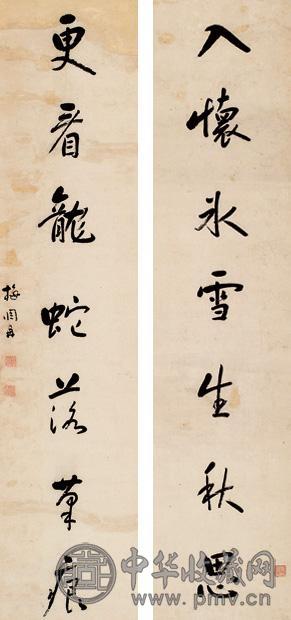 入懷冰雪生秋思
更看龍蛇落筆痕
梅調鼎
中华收藏网
www.pmv.cn